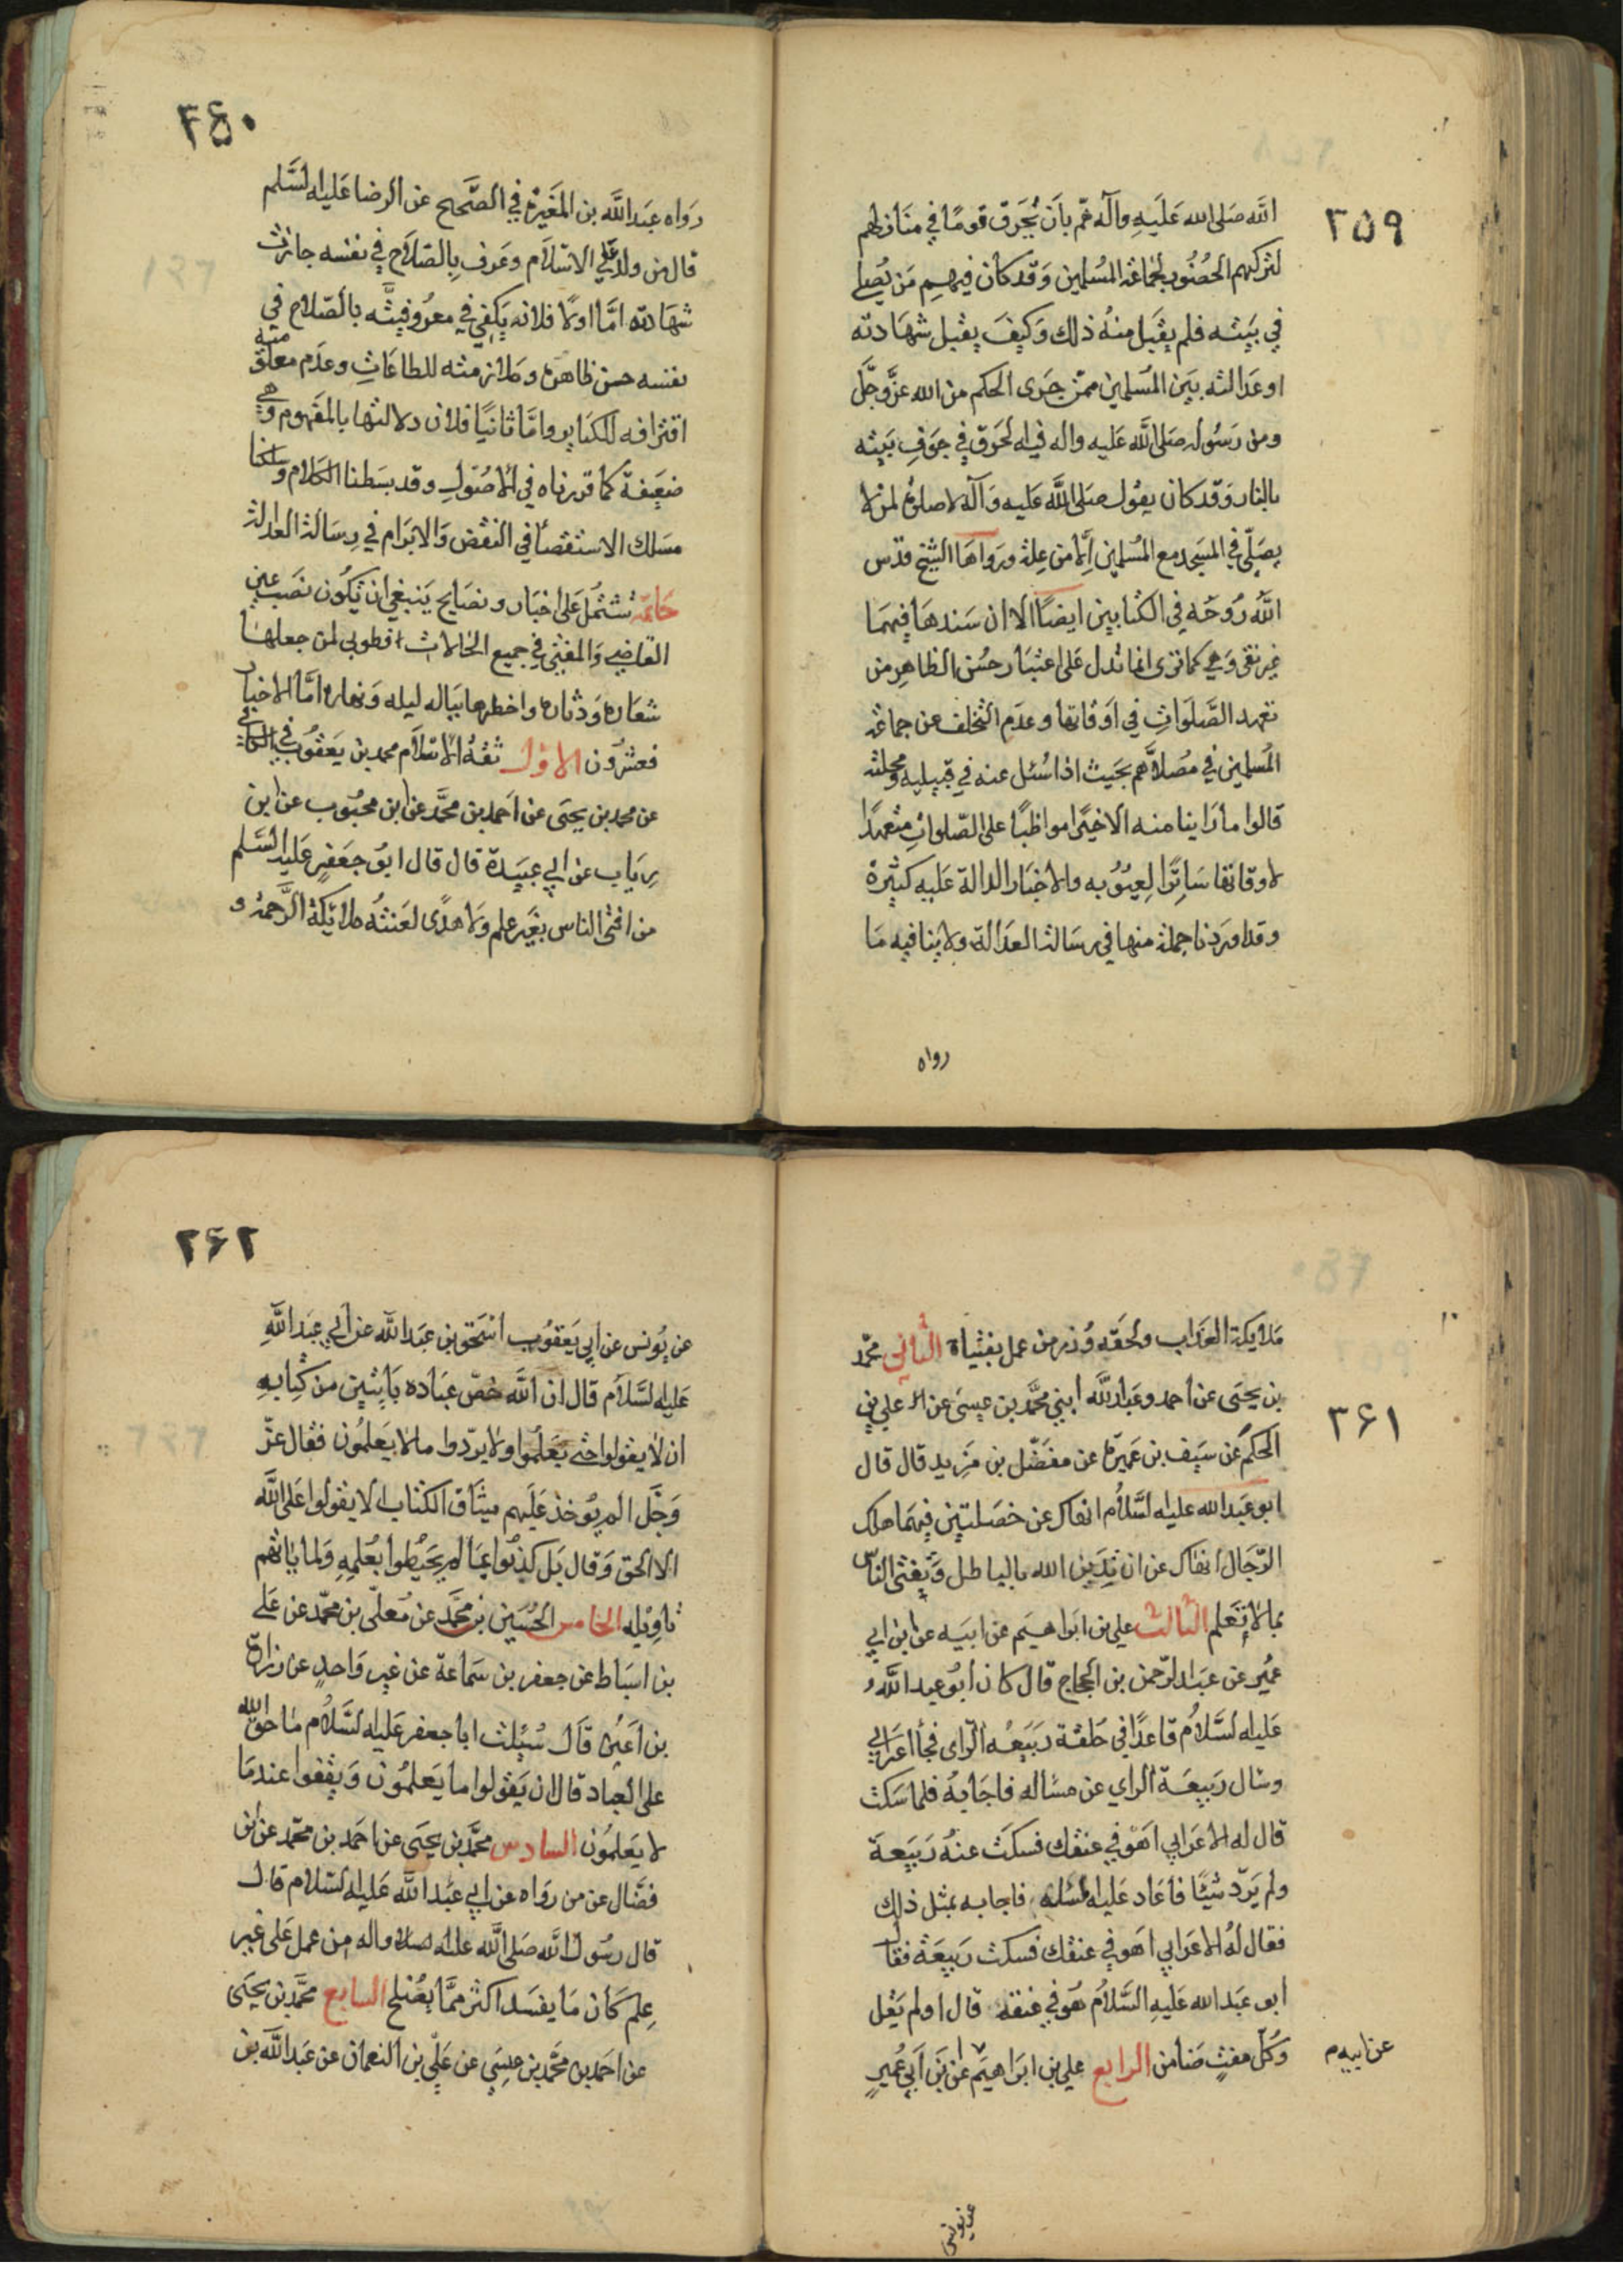 ٢٥٩
الله صلى الله عليه وآله همّ بأن يحرق قومًا في منازلهم
لتركهم الحضور لجماعة المسلمين وقد كان فيهم من يصلي
في بيته فلم يقبل منه ذلك وكيف يقبل شهادته
او عدالته بين المسلمين ممن جرى الحكم من الله عزّ وجلّ
ومن رسوله صلى الله عليه واله فيه الحرق في جوف بيته
بالنار وقد كان يقول صلى الله عليه وآله لا صلوة لمن لا
يصلّي في المسجد مع المسلمين إلّا من علة ورواها الشيخ قدّس
الله روحه في الكتابين ايضًا الا ان سندها فيهما
غير نقي وهي كما ترى انما تدل على اعتبار حسن الظاهر من
تعهد الصلوات في اوقاتها وعدم التخلف عن جماعة
المسلمين في مصلاهم بحيث اذا سئل عنه في قبيلته ومحلته
قالوا ما راينا منه الا خيرًا مواظبًا على الصلوات متعهدًا
لاوقاتها ساترًا لعيوبه والاخبار الدالة عليه كثيرة
وقد اوردنا جملة منها في رسالة العدالة ولا ينافيه ما
رواه
٢۶٠
رواه عبد الله بن المغيرة في الصحيح عن الرضا عليه السلم
قال من ولد على الاسلام وعرف بالصلاح في نفسه جازت
شهادته امّا اولًا فلانه يكفي في معروفيته بالصلاح في
نفسه حسن ظاهره وملازمته للطاعات وعدم معلومية
اقترافه للكبائر وامّا ثانيًا فلان دلالتها بالمفهوم وهي
ضعيفة كما قررناه في الاصول وقد بسطنا الكلام وسلكنا
مسلك الاستقصاء في النقض والابرام في رسالة العدالة
خاتمة تشتمل على اخبار ونصايح ينبغي ان تكون نصب عين
القاضي والمفتي في جميع الحالات فطوبى لمن جعلها
شعاره ودثاره واخطرها بباله ليله ونهاره امّا الاخبار
فعشرون الاول ثقة الاسلام محمد بن يعقوب في الكافي
عن محمد بن يحيى عن احمد بن محمّد عن ابن محبوب عن ابن
رياب عن ابي عبيدة قال قال ابو جعفر عليه السلم
من افتى الناس بغير علم ولا هدًى لعنته ملائكة الرحمة و
٣۶١
ملايكة العذاب ولحقه وزر من عمل بفتياه الثاني محمّد
بن يحيى عن احمد وعبد الله ابني محمّد بن عيسى عن علي بن
الحكم عن سيف بن عميرة عن مفضّل بن مزيد قال قال
ابو عبد الله عليه السلام انهاك عن خصلتين فيهما هلك
الرّجال انهاك عن ان تدين الله بالباطل وتفتى الناس
بما لا تعلم الثالث علي بن ابراهيم عن ابيه عن ابن ابي
عمير عن عبد الرّحمن بن الحجاج قال كان ابو عبد الله
عليه السلام قاعدًا في حلقة ربيعة الرّاى فجأ اعرابي
وسال ربيعة الراي عن مسالة فاجابه فلما سكت
قال له الاعرابي اهو في عنقك فسكت عنه ربيعة
ولم يردّ شيئًا فاعاد عليه المسئلة فاجابه بمثل ذلك
فقال له الاعرابي اهو في عنقك فسكت ربيعة فقال
ابو عبد الله عليه السلام هو في عنقه قال اولم يقل
وكلّ مفتٍ ضامن الرابع علي بن ابراهيم عن بن ابي عمير
عن ابيه م
عن يونس
٢۶٢
عن يونس عن ابي يعقوب اسحق بن عبد الله عن ابي عبد الله
عليه السلام قال ان الله خصّ عباده بآيتين من كتابه
ان لا يقولوا حتى يعلموا ولا يردّوا ما لا يعلمون فقال عزّ
وجلّ الم يؤخذ عليهم ميثاق الكتاب الا يقولوا على الله
الا الحق وقال بل كذبوا بما لم يحيطوا بعلمه ولما ياتهم
تاويله الخامس الحسين بن محمّد عن معلّى بن محمّد عن علي
بن اسباط عن جعفر بن سماعة عن غير واحد عن زرارة
بن اعين قال سئلت ابا جعفر عليه السلام ما حق الله
على العباد قال ان يقولوا ما يعلمون ويقفوا عند ما
لا يعلمون السادس محمّد بن يحيى عن احمد بن محمّد عن ابن
فضّال عن من رواه عن ابي عبد الله عليه السلام قال
قال رسول الله صلى الله عليه واله من عمل على غير
علم كان ما يفسد اكثر ممّا يصلح السابع محمّد بن يحيى
عن احمد بن محمّد بن عيسى عن علي بن النعمان عن عبد الله بن